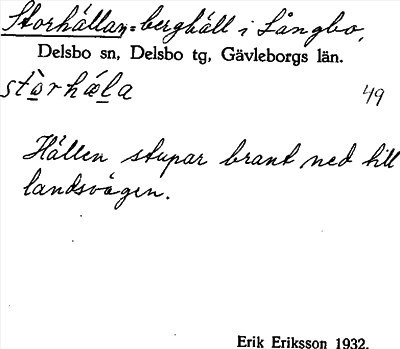 Storhällan = berghäll i Långbo,
Delsbo sn, Delsbo tg, Gävleborgs län.
stòrhæla 49
Hällen stupar brant ned till
landsvägen.
Erik Eriksson 1932.